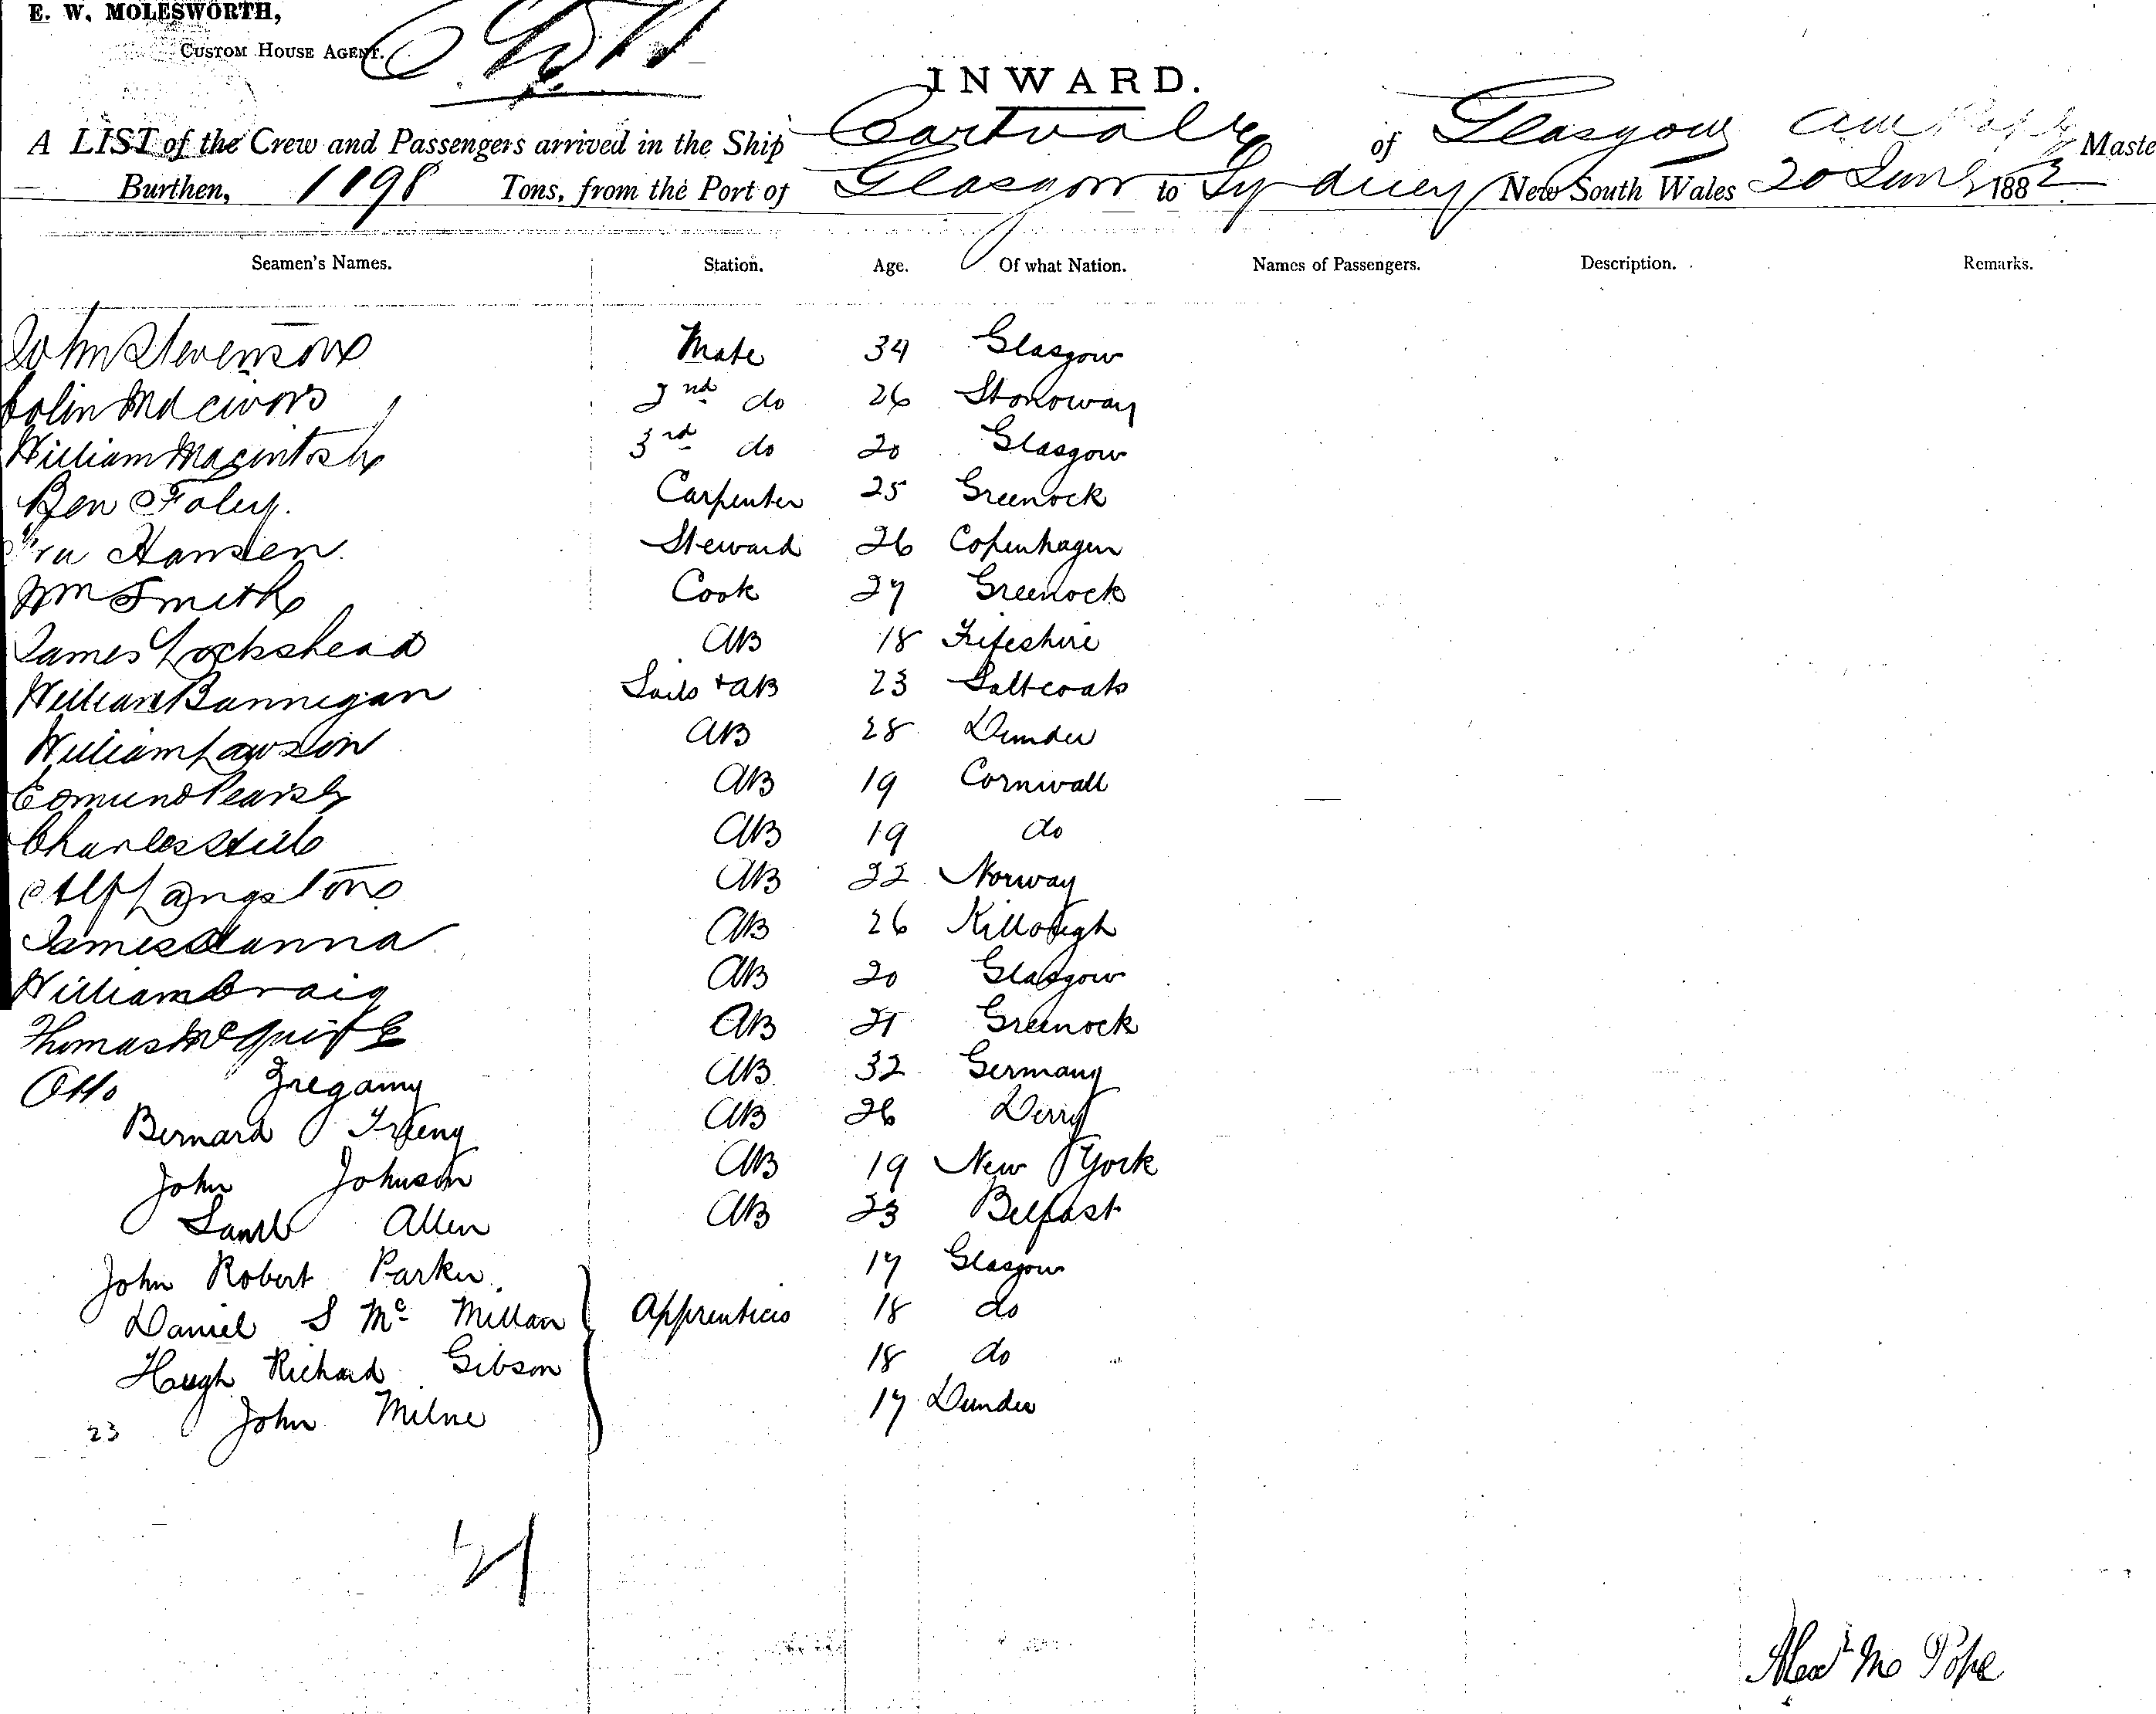 E. W. MOLESWORTH,
CUSTOM HOUSE AGENT.
INWARD.
A LIST of the Crew and Passengers arrived in the Ship Cartvale of Glasgow A M Pope Maste
Burthen, 1198 Tons, from the Port of Glasgow to Sydney New South Wales 20 June 1882
Seamen's Names. Station. Age. Of what Nation. Names of Passengers. Description. Remarks.
John Stevenson Mate 34 Glasgow
Colin Macivor 2nd do 26 Stonoway
William Macintosh 3rd do 20 Glasgow
Ben Foley. Carpenter 25 Greenock
Hansen Steward 26 Copenhagen
Wm Smith Cook 27 Greenock
James Lockshead AB 18 Fifeshire
William Bannigan Sails + AB 23 Saltcoats
William Lawson AB 28 Dundee
Edmund AB 19 Cornwall
Charles AB 19 do
Alf Langston AB 22 Norway
James Hanna AB 26 Killough
William Craig AB 20 Glasgow
Thomas McGuire AB 21 Greenock
Otto AB 32 Germany
Bernard AB 26 Derry
John Johnson AB 19 New York
Saml Allen AB 23 Belfast
John Robert Parker 17 Glasgow
Daniel S Mc Millan Apprentices 18 do
Hugh Richard Gibson 18 do
23 John Milne 17 Dundee
Alexr Mc Pope